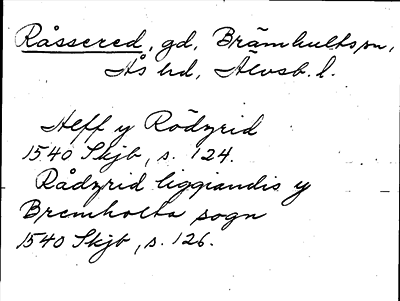 Råssered, gd, Brämhultssn,
Ås hd, Älvsb. l.
Aleff y Rödzrid
1540 Skjb, s. 124.
Rådzrid liggiandis y
Bremholta sogn
1540 Skjb, s. 126.